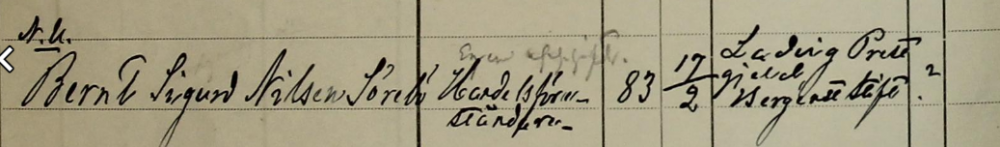 N. U.
Bernt Sigurd Nilsen Sörebö Handelsföre-
ståndare
83 17/2
Lading Prest
gjeld
Bergens stift ?